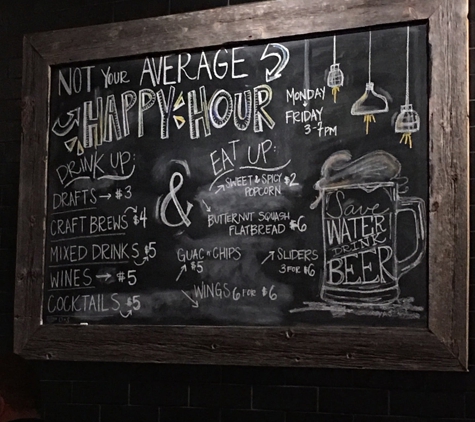 NOT YOUR AVERAGE
HAPPY HOUR
MONDAY
FRIDAY
3-7PM
DRINK UP:
DRAFTS → $3
CRAFT BREWS $4
MIXED DRINKS $5
WINES → $5
COCKTAILS $5
&
EAT UP:
SWEET & SPICY $2
POPCORN
BUTTERNUT SQUASH
FLATBREAD $6
GUAC n CHIPS
$5
SLIDERS
3 FOR $6
WINGS 6 FOR $6
Save
WATER
DRINK
BEER